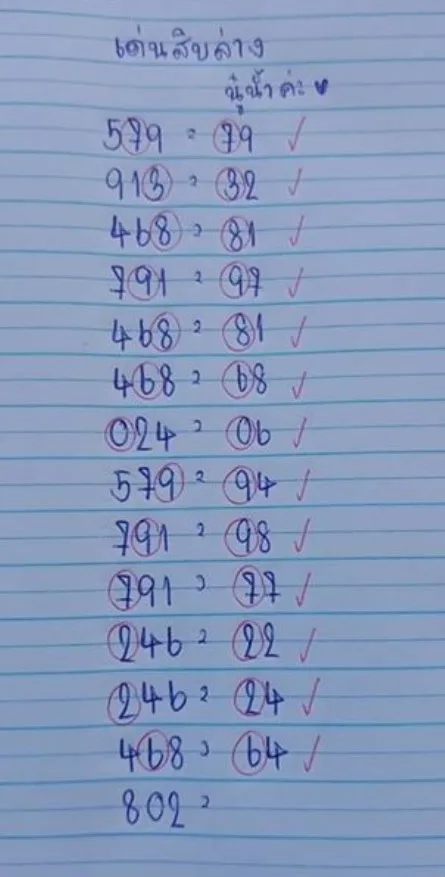 เด่นสิบล่าง
นู๋น้ำค่ะ
579 = 79 ✓
913 = 32 ✓
468 = 81 ✓
791 = 97 ✓
468 = 81 ✓
468 = 68 ✓
024 = 06 ✓
579 = 94 ✓
791 = 98 ✓
791 = 77 ✓
246 = 22 ✓
246 = 24 ✓
468 = 64 ✓
802 =